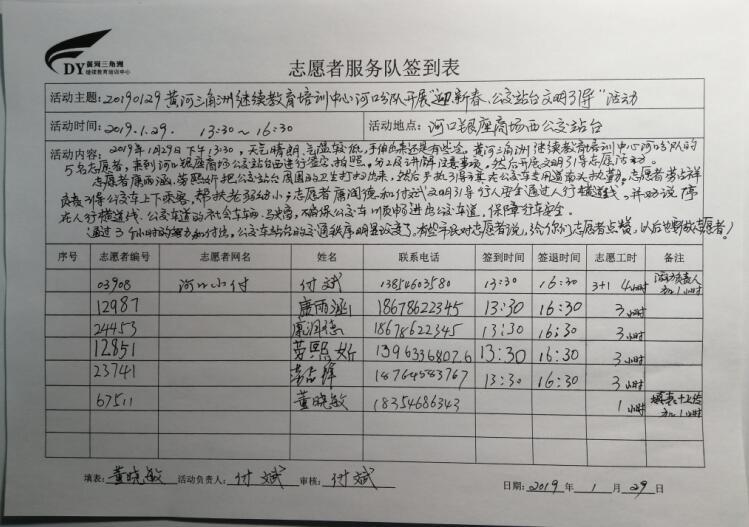 黄河三角洲
DY 继续教育培训中心
志愿者服务队签到表
活动主题:20190129黄河三角洲继续教育培训中心河口分队开展"迎新春、公交站台文明引导"活动
活动时间:2019.1.29. 13:30~16:30 活动地点:河口银座商场西公交站台
活动内容:2019年1月29日下午13:30,天气晴朗,气温较低,手伸出来还是有些冷。黄河三角洲继续教育培训中心河口分队的
5名志愿者,来到河口银座商场公交站台西进行签字、拍照,分工及讲解注意事项,然后开展文明引导志愿活动。
志愿者康雨涵、劳熙昕把公交站台周围的卫生打扫出来,然后手执引导旗在公交车专用道南头执勤。志愿者
负责引导公交车上下乘客,帮扶老弱幼小,志愿者扈润德和付斌文明引导行人安全通过人行横道线,并劝说停
在人行横道线、公交车道的社会车辆驶离,确保公交车顺畅进出公交车道,保障行车安全。
通过3个小时的努力和付出,公交车站台的交通秩序明显改变了,有些市民对志愿者说,给你们志愿者点赞,以后也要做志愿者!
序号 志愿者编号 志愿者网名 姓名 联系电话 签到时间 签退时间 志愿工时 备注
03908 河口小付 付斌 13854603580 13:30 16:30 3+1 4小时 活动负责人加1小时
12987 康雨涵 18678622345 13:30 16:30 3小时
24453 扈润德 18678622345 13:30 16:30 3小时
12851 劳熙昕 13963368076 13:30 16:30 3小时
23741 18764583767 13:30 16:30 3小时
67511 董晓敏 18354686343 1小时 填表+上传加1小时
填表:董晓敏 活动负责人:付斌 审核:付斌 日期:2019年1月29日